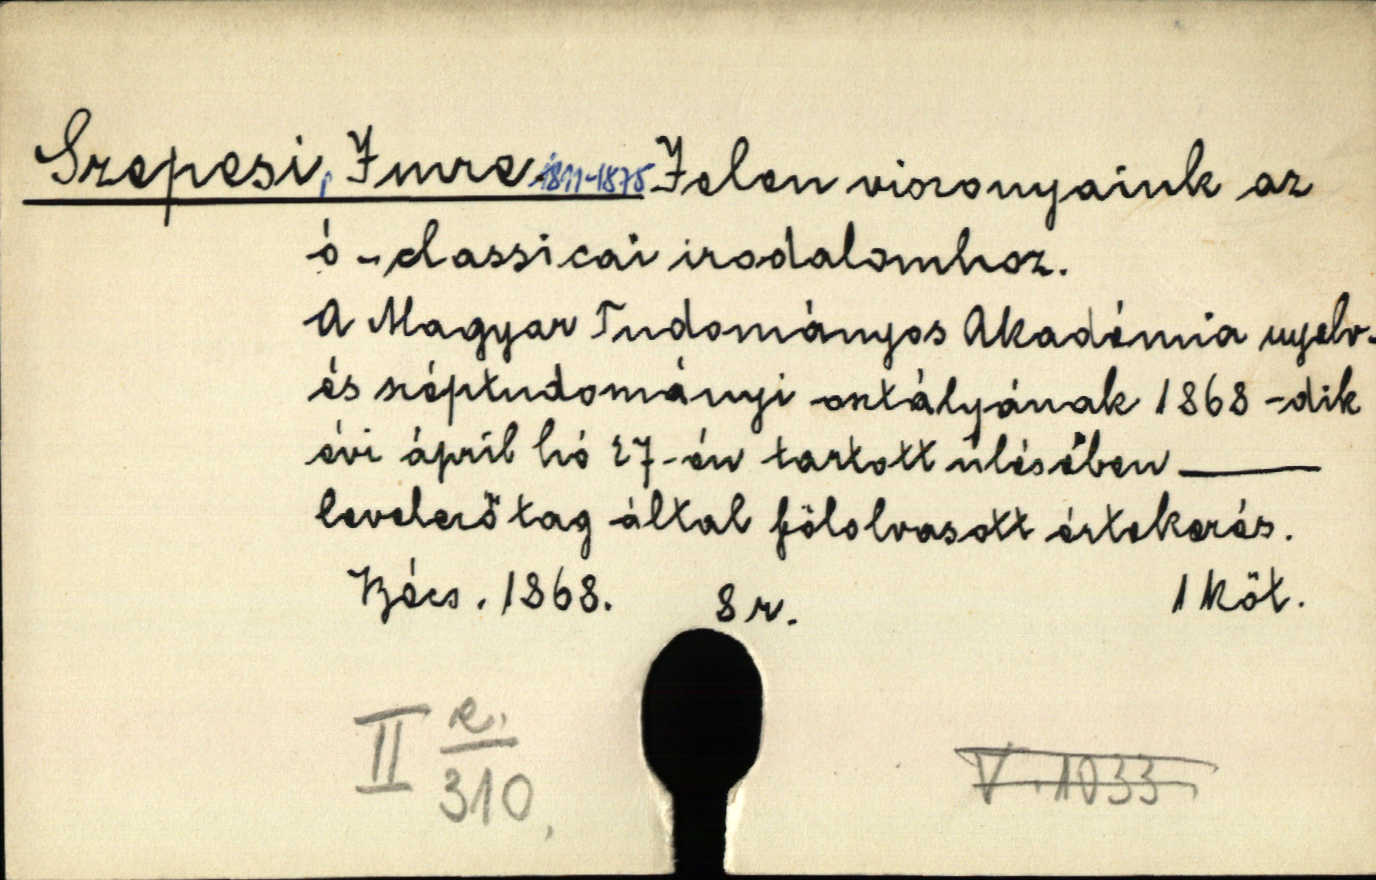 Szepesi, Imre 1811-1875 Jelen viszonyaink az
ó-classicai irodalomhoz.
A Magyar Tudományos Akadémia nyelv-
és széptudományi osztályának 1868-dik
évi ápril hó 27-én tartott ülésében ———
levelező tag által fölolvasott értekezés.
Bécs. 1868. 8 r. 1 Köt.
II e. / 310.
V. 1033